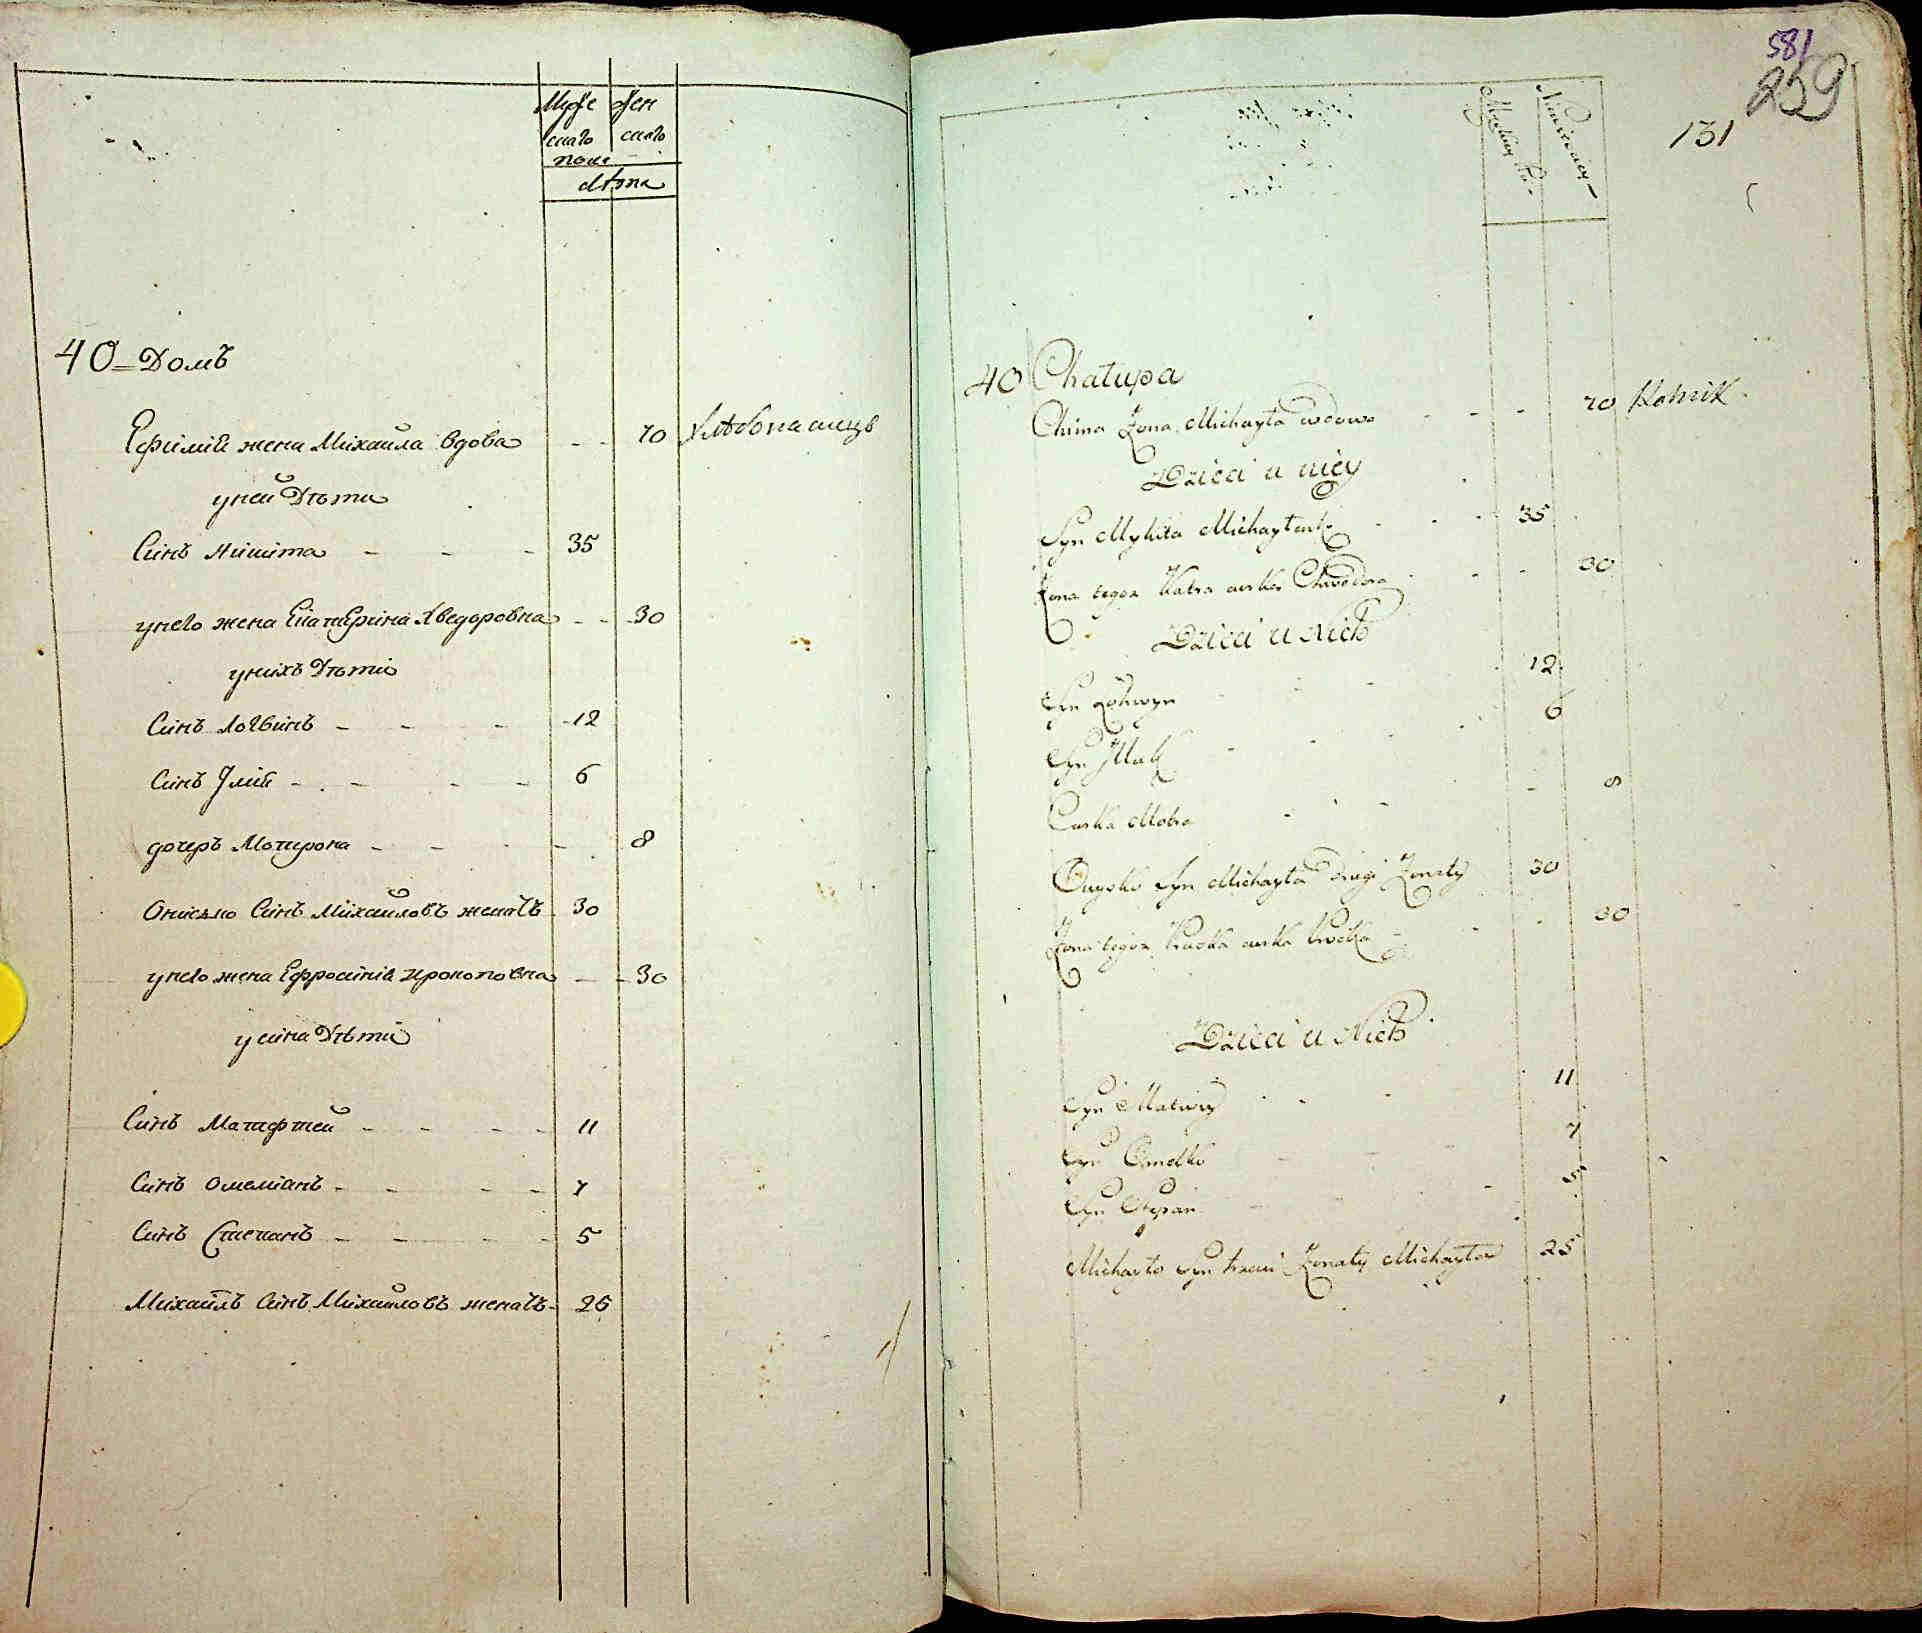 Муже жен
скаго скаго
пола
лѣта
40 = Домъ
Ефимія жена Михайла вдова - - 70 Хлѣбопашецъ
у ней Дѣти
Синъ Никита - - - 35
у него жена Екатерина Хведоровна - - 30
у нихъ Дѣти
Синъ Логвинъ - - - 12
Синъ Илія - - - - 6
дочеръ Мотрона - - - - 8
Онисько Синъ Михайловъ женатъ 30
у него жена Ефросинія Прокоповна - - 30
у сина Дѣти
Синъ Матфтей - - - - 11
Синъ Омелианъ - - - 7
Синъ Степанъ - - - - 5
Михаилъ Синъ Михайловъ женатъ - 25
581
259
131
40 Chałupa
Chima Żona Michayła wdowa - - - 70 Rolnik
Dzieci u niey
Syn Mykita - - - 35
Żona tegoż Katra curka Chwedora - - - 30
Dzieci u Nich
Syn Lohwyn - - - 12
Syn - - - 6
Curka Motra - - - 8
Onyśko Syn Michayła drugi Żonaty 30
Żona tegoż curka - - - 30
Dzieci u Nich
Syn Matwiy - - - 11
Syn Omelko - - - 7
Syn Stepan - - - 5
Michayło Syn trzeci Żonaty Michayła 25